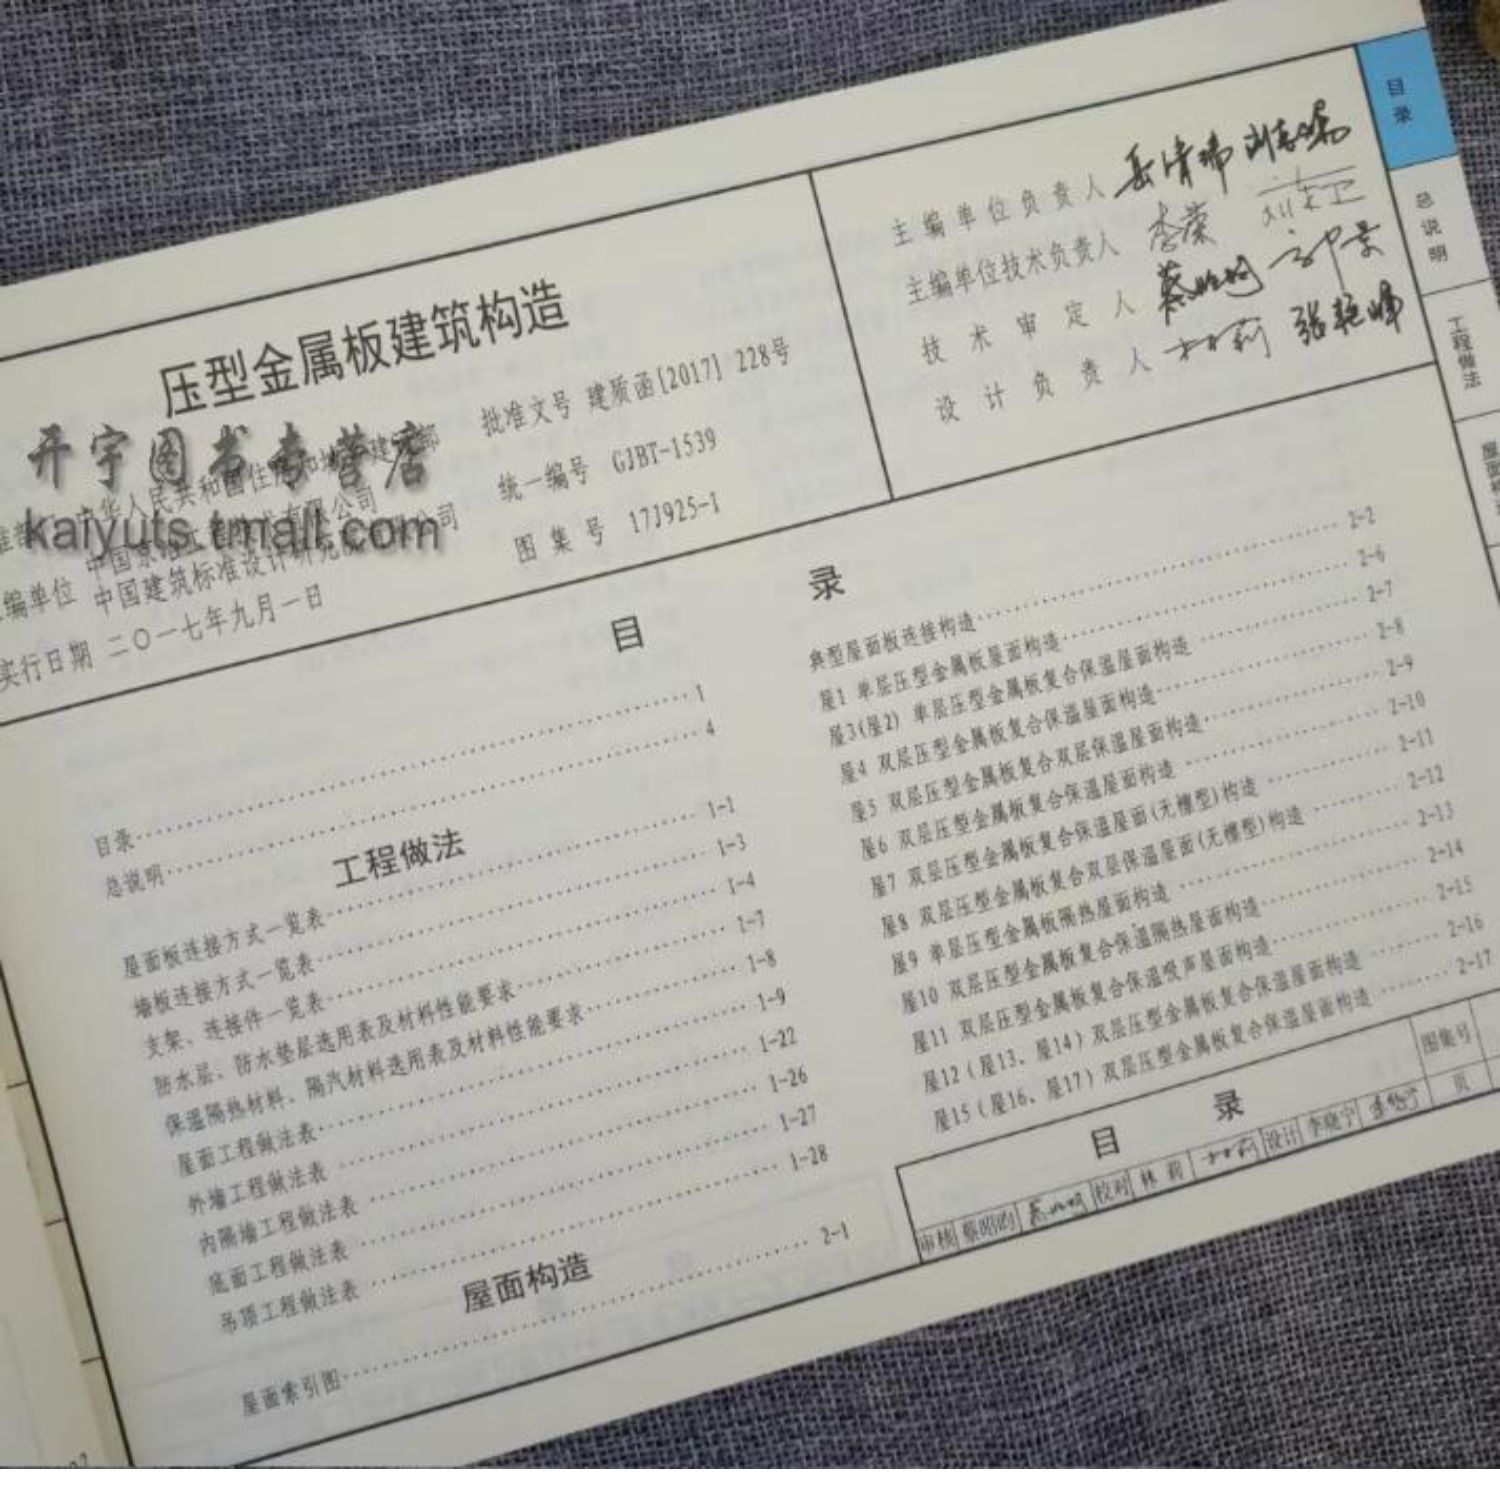 压型金属板建筑构造
中华人民共和国住
批准文号 建质函[2017] 228号
统一编号 GJBT-1539
图集号 17J925-1
编单位
中国建筑标准设计研究
公司
实行日期 二〇一七年九月一日
开宇图书专营店
kaiyuts.tmall.com
主编单位负责人
主编单位技术负责人
技术审定人
设计负责人
目录
目录 1
总说明 4
工程做法
屋面板连接方式一览表 1-1
墙板连接方式一览表 1-3
支架、连接件一览表 1-4
防水层、防水垫层选用表及材料性能要求 1-7
保温隔热材料、隔汽材料选用表及材料性能要求 1-8
屋面工程做法表 1-9
外墙工程做法表 1-22
内隔墙工程做法表 1-26
底面工程做法表 1-27
吊顶工程做法表 1-28
屋面构造
屋面索引图 2-1
典型屋面板连接构造 2-2
屋1 单层压型金属板屋面构造 2-6
屋3(屋2) 单层压型金属板复合保温屋面构造 2-7
屋4 双层压型金属板复合保温屋面构造 2-8
屋5 双层压型金属板复合双层保温屋面构造 2-9
屋6 双层压型金属板复合保温屋面构造 2-10
屋7 双层压型金属板复合保温屋面(无檩型)构造 2-11
屋8 双层压型金属板复合双层保温屋面(无檩型)构造 2-12
屋9 单层压型金属板隔热屋面构造 2-13
屋10 双层压型金属板复合保温隔热屋面构造 2-14
屋11 双层压型金属板复合保温吸声屋面构造 2-15
屋12(屋13、屋14)双层压型金属板复合保温屋面构造 2-16
屋15(屋16、屋17)双层压型金属板复合保温屋面构造 2-17
目录
图集号
审核 蔡昭昀 校对 林莉 设计 李晓宁 页
目录
总说明
工程做法
屋面